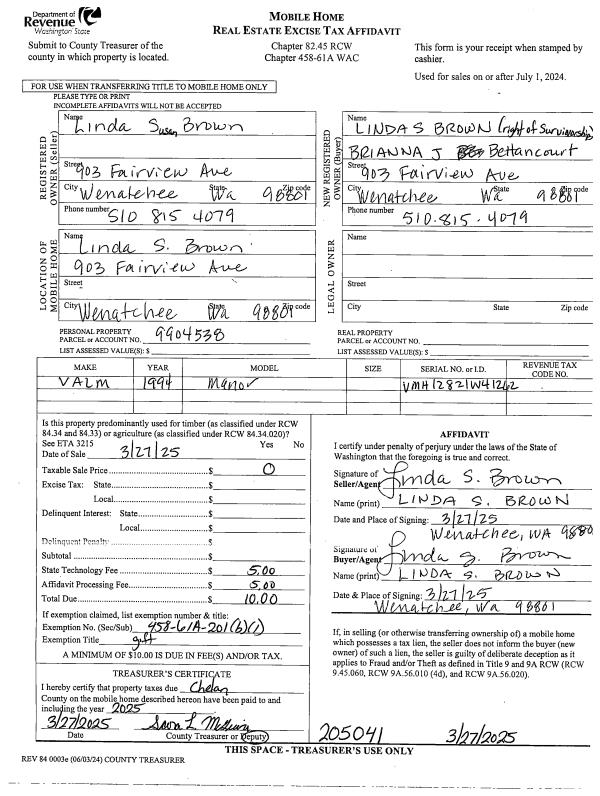 Department of
Revenue
Washington State
MOBILE HOME
REAL ESTATE EXCISE TAX AFFIDAVIT
Submit to County Treasurer of the
county in which property is located.
Chapter 82.45 RCW
Chapter 458-61A WAC
This form is your receipt when stamped by
cashier.
Used for sales on or after July 1, 2024.
FOR USE WHEN TRANSFERRING TITLE TO MOBILE HOME ONLY
PLEASE TYPE OR PRINT
INCOMPLETE AFFIDAVITS WILL NOT BE ACCEPTED
REGISTERED
OWNER (Seller)
Name
Linda Susan Brown
Street 903 Fairview Ave
City Wenatchee State Wa Zip code 98801
Phone number 510 815 4079
NEW REGISTERED
OWNER (Buyer)
Name
LINDA S BROWN (right of Survivorship)
BRIANNA J Bettancourt
Street 903 Fairview Ave
City Wenatchee State Wa Zip code 98801
Phone number 510.815.4079
LOCATION OF
MOBILE HOME
Name
Linda S. Brown
903 Fairview Ave
Street
City Wenatchee State Wa Zip code 98801
LEGAL OWNER
Name
Street
City State Zip code
PERSONAL PROPERTY
PARCEL or ACCOUNT NO. 9904538
LIST ASSESSED VALUE(S): $
REAL PROPERTY
PARCEL or ACCOUNT NO.
LIST ASSESSED VALUE(S): $
MAKE YEAR MODEL SIZE SERIAL NO. or I.D. REVENUE TAX
CODE NO.
VALM 1994 Manor VMH12821W41262
Is this property predominantly used for timber (as classified under RCW
84.34 and 84.33) or agriculture (as classified under RCW 84.34.020)?
See ETA 3215 Yes No
Date of Sale 3/27/25
Taxable Sale Price $ 0
Excise Tax: State $
Local $
Delinquent Interest: State $
Local $
Delinquent Penalty $
Subtotal $
State Technology Fee $ 5.00
Affidavit Processing Fee $ 5.00
Total Due $ 10.00
If exemption claimed, list exemption number & title:
Exemption No. (Sec/Sub) 458-61A-201(b)(1)
Exemption Title gift
A MINIMUM OF $10.00 IS DUE IN FEE(S) AND/OR TAX.
TREASURER'S CERTIFICATE
I hereby certify that property taxes due Chelan
County on the mobile home described hereon have been paid to and
including the year 2025
3/27/2025
Date County Treasurer or Deputy
AFFIDAVIT
I certify under penalty of perjury under the laws of the State of
Washington that the foregoing is true and correct.
Signature of
Seller/Agent Linda S. Brown
Name (print) LINDA S. BROWN
Date and Place of Signing: 3/27/25
Wenatchee, WA 9880
Signature of
Buyer/Agent Linda S. Brown
Name (print) LINDA S. BROWN
Date & Place of Signing: 3/27/25
Wenatchee, Wa 98801
If, in selling (or otherwise transferring ownership of) a mobile home
which possesses a tax lien, the seller does not inform the buyer (new
owner) of such a lien, the seller is guilty of deliberate deception as it
applies to Fraud and/or Theft as defined in Title 9 and 9A RCW (RCW
9.45.060, RCW 9A.56.010 (4d), and RCW 9A.56.020).
205041 3/27/2025
THIS SPACE - TREASURER'S USE ONLY
REV 84 0003e (06/03/24) COUNTY TREASURER